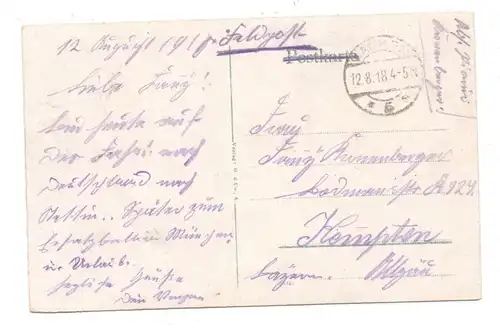 12 August 1918. Feldpost
Postkarte
12.8.18.4-5N
* 5 *
Abs.
Liebe Fanny!
Bin heute auf
der Fahrt nach
Deutschland nach
Stettin.. Später zum
Ersatzbatln München
u. Urlaub.
Herzliche Grüße
Dein
Frau
Fanny Kronenberger
Bodmanstr. A 924
Kempten
Bayern. Allgäu